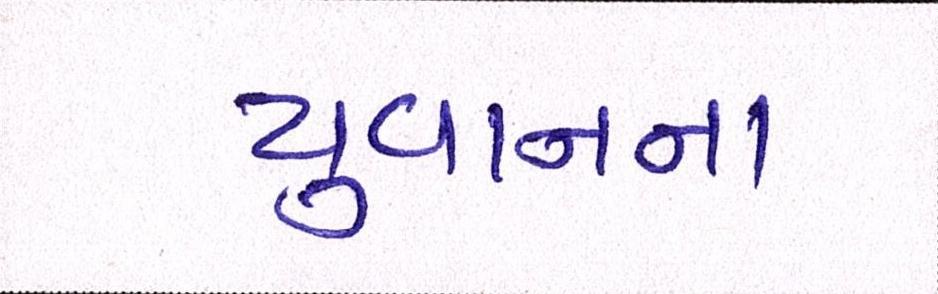 યુવાનના